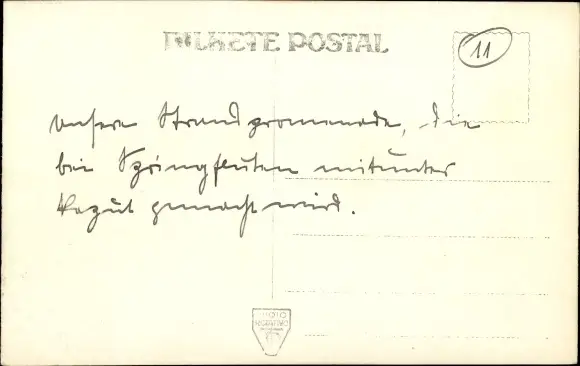 BILHETE POSTAL
11
unsere Strandpromenade, die
bei Springfluten mitunter
kaput gemacht wird.